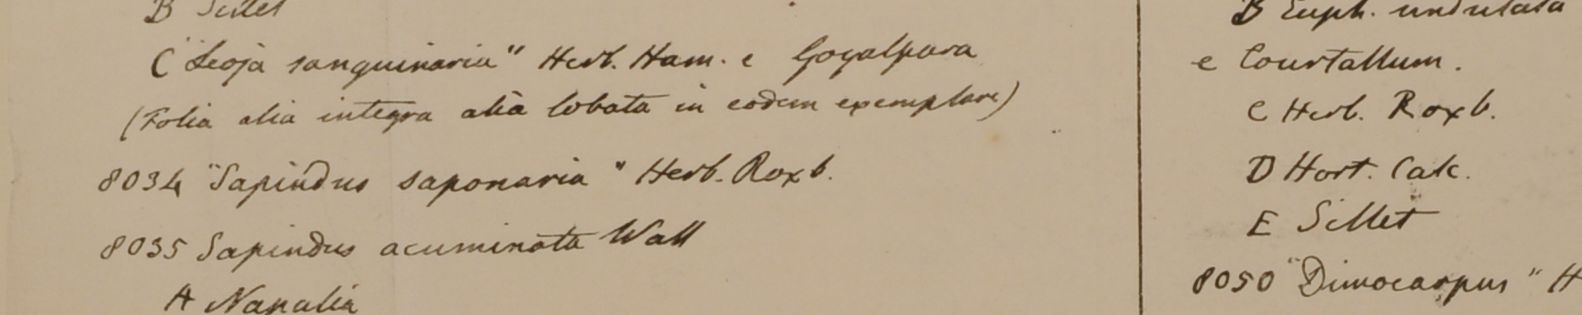 B Sillet
C "Scoja sanguinaria" Herb. Ham. e Goyalpara
(Folia alia integra alia lobata in eodem exemplare)
8034 "Sapindus saponaria" Herb. Roxb.
8035 Sapindus acuminata Wall
A Napalia
B Euph. undulata
e Courtallum.
C Herb. Roxb.
D Hort. Calc.
E Sillet
8050 "Dimocarpus" H